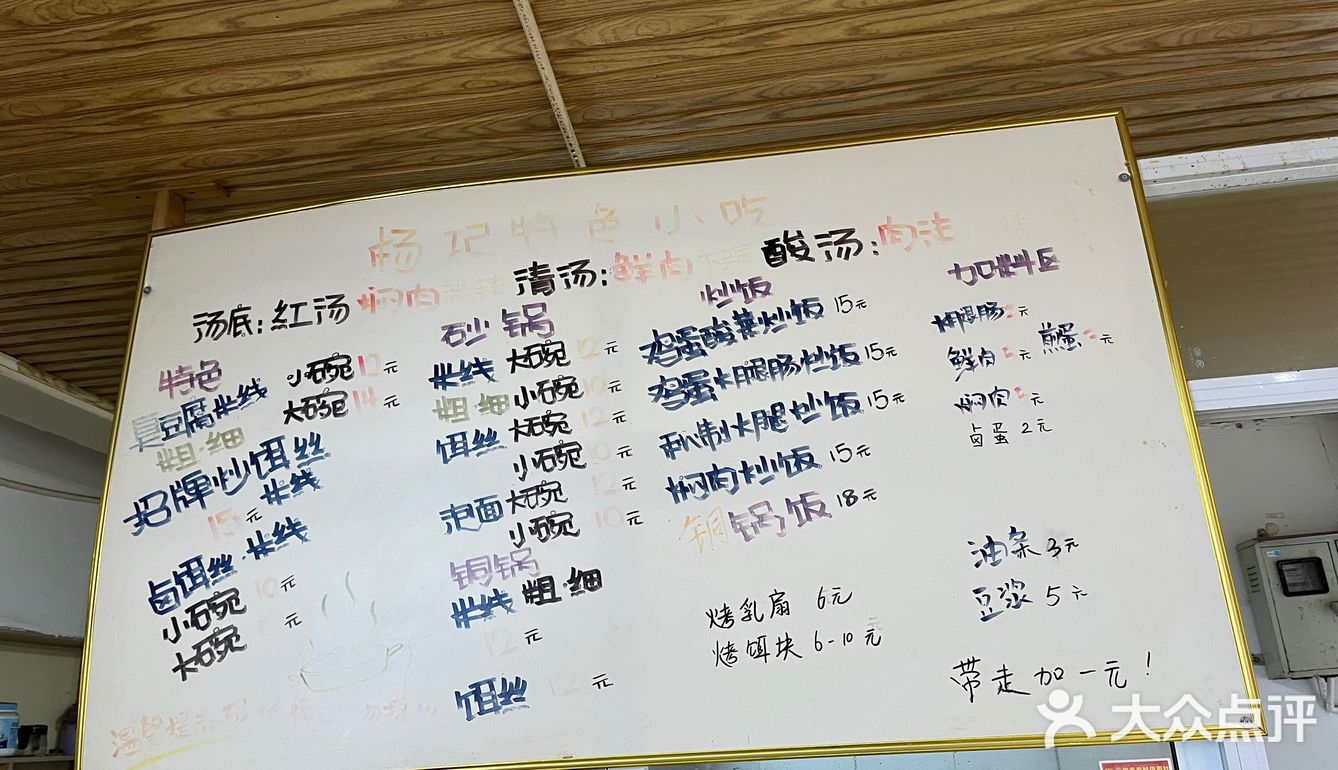 杨记特色小吃
汤底：紅汤 焖肉
清汤：鲜肉
酸汤：肉沫
特色
臭豆腐米线 小碗12元
粗.细 大碗14元
招牌炒饵丝
米线
15元
卤饵丝.米线
小碗 10元
大碗 元
砂锅
米线 大碗 12元
粗.细 小碗 10元
饵丝 大碗 12元
小碗 10元
泡面 大碗 12元
小碗 10元
铜锅
米线 粗.细
12元
饵丝 12元
炒饭
鸡蛋酸菜炒饭 15元
鸡蛋火腿肠炒饭 15元
私制火腿炒饭 15元
焖肉炒饭 15元
铜锅饭 18元
烤乳扇 6元
烤饵块 6-10元
加料区
火腿肠 2元
鲜肉 元 煎蛋 元
焖肉 元
卤蛋 2元
油条 3元
豆浆 5元
带走加一元！
温馨提示
大众点评